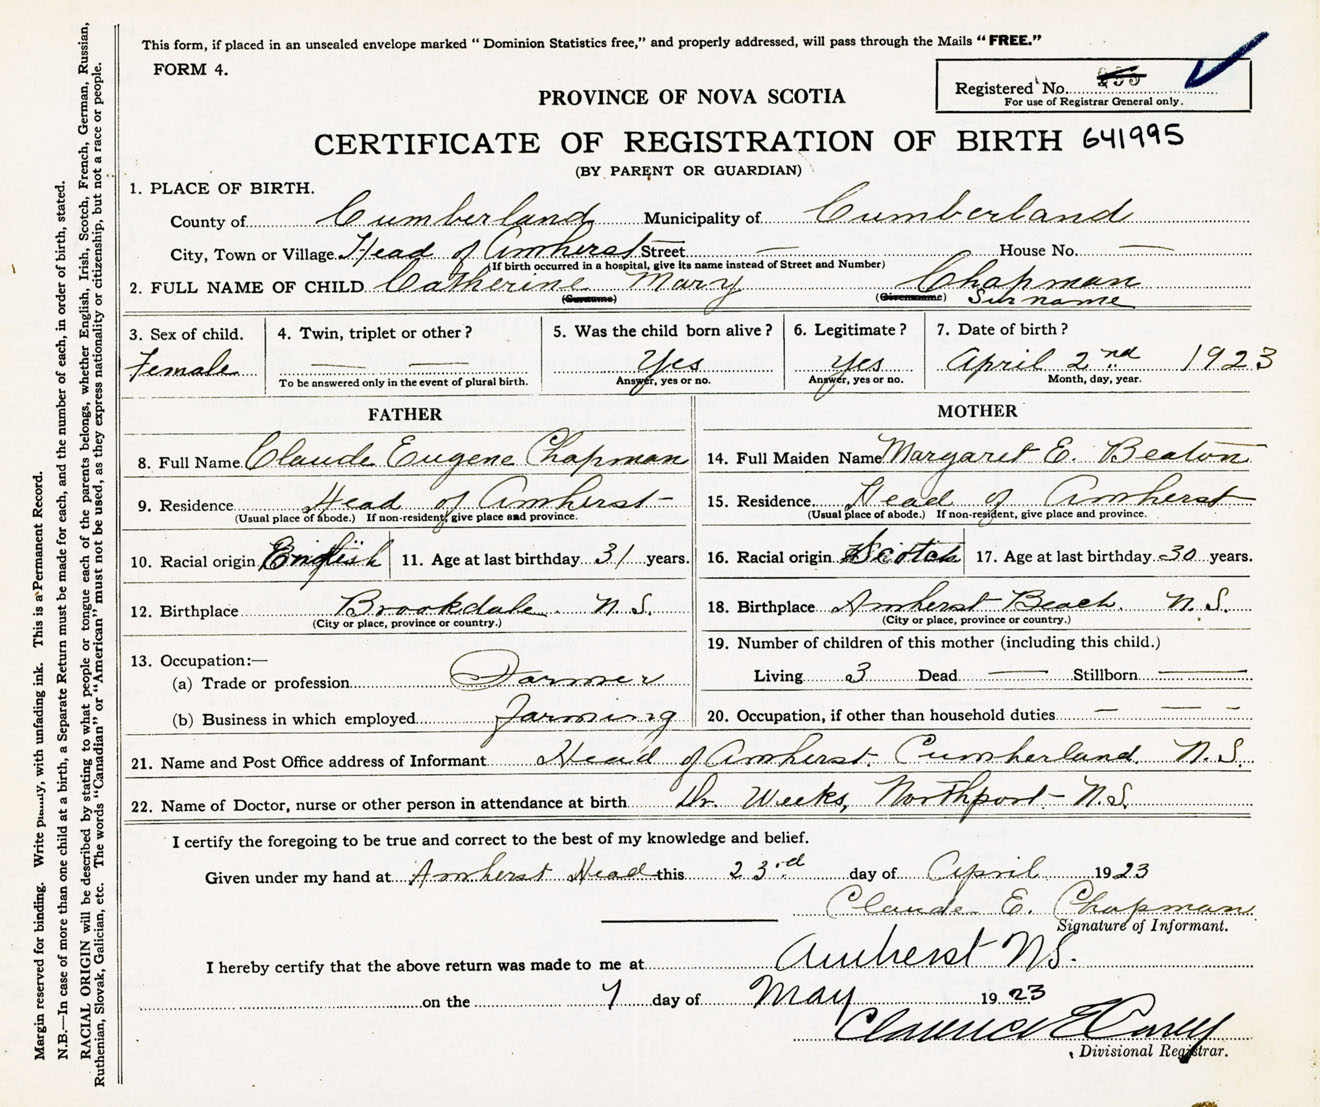 This form, if placed in an unsealed envelope marked “ Dominion Statistics free,” and properly addressed, will pass through the Mails “ FREE.”
FORM 4.
Registered No.
For use of Registrar General only.
PROVINCE OF NOVA SCOTIA
CERTIFICATE OF REGISTRATION OF BIRTH 641995
(BY PARENT OR GUARDIAN)
1. PLACE OF BIRTH.
County of Cumberland Municipality of Cumberland
City, Town or Village Head of Amherst Street — House No. —
(If birth occurred in a hospital, give its name instead of Street and Number)
2. FULL NAME OF CHILD Catherine Mary Chapman
(Surname) (Givenname) Surname
3. Sex of child. Female
4. Twin, triplet or other? — —
To be answered only in the event of plural birth.
5. Was the child born alive? Yes
Answer, yes or no.
6. Legitimate? Yes
Answer, yes or no.
7. Date of birth? April 2nd 1923
Month, day, year.
FATHER
8. Full Name Claude Eugene Chapman
9. Residence Head of Amherst
(Usual place of abode.) If non-resident, give place and province.
10. Racial origin English 11. Age at last birthday 31 years.
12. Birthplace Brookdale N.S.
(City or place, province or country.)
13. Occupation:—
(a) Trade or profession Farmer
(b) Business in which employed Farming
MOTHER
14. Full Maiden Name Margaret E. Beaton
15. Residence Head of Amherst
(Usual place of abode.) If non-resident, give place and province.
16. Racial origin Scotch 17. Age at last birthday 30 years.
18. Birthplace Amherst Beach. N.S.
(City or place, province or country.)
19. Number of children of this mother (including this child.)
Living 3 Dead — Stillborn — —
20. Occupation, if other than household duties — — — -
21. Name and Post Office address of Informant Head of Amherst. Cumberland. N.S.
22. Name of Doctor, nurse or other person in attendance at birth Dr. Weeks, Northport - N.S.
I certify the foregoing to be true and correct to the best of my knowledge and belief.
Given under my hand at Amherst Head this 23rd day of April 1923
Claude E. Chapman
Signature of Informant.
I hereby certify that the above return was made to me at Amherst NS.
on the 7 day of May 1923
Clarence E
Divisional Registrar.
Margin reserved for binding. Write with unfading ink. This is a Permanent Record.
N.B.—In case of more than one child at a birth, a Separate Return must be made for each, and the number of each, in order of birth, stated.
RACIAL ORIGIN will be described by stating to what people or tongue each of the parents belongs, whether English, Irish, Scotch, French, German, Russian,
Ruthenian, Slovak, Galician, etc. The words “Canadian” or “American” must not be used, as they express nationality or citizenship, but not a race or people.